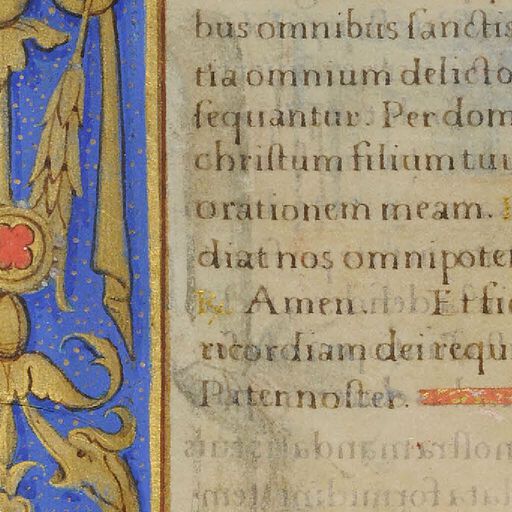 bus omnibus sanctis
tia omnium delicto
sequantur. Per dom
christum filium tuu
orationem meam.
diat nos omnipoten
℟. Amen Et fid
ricordiam dei requi
Paternoster.